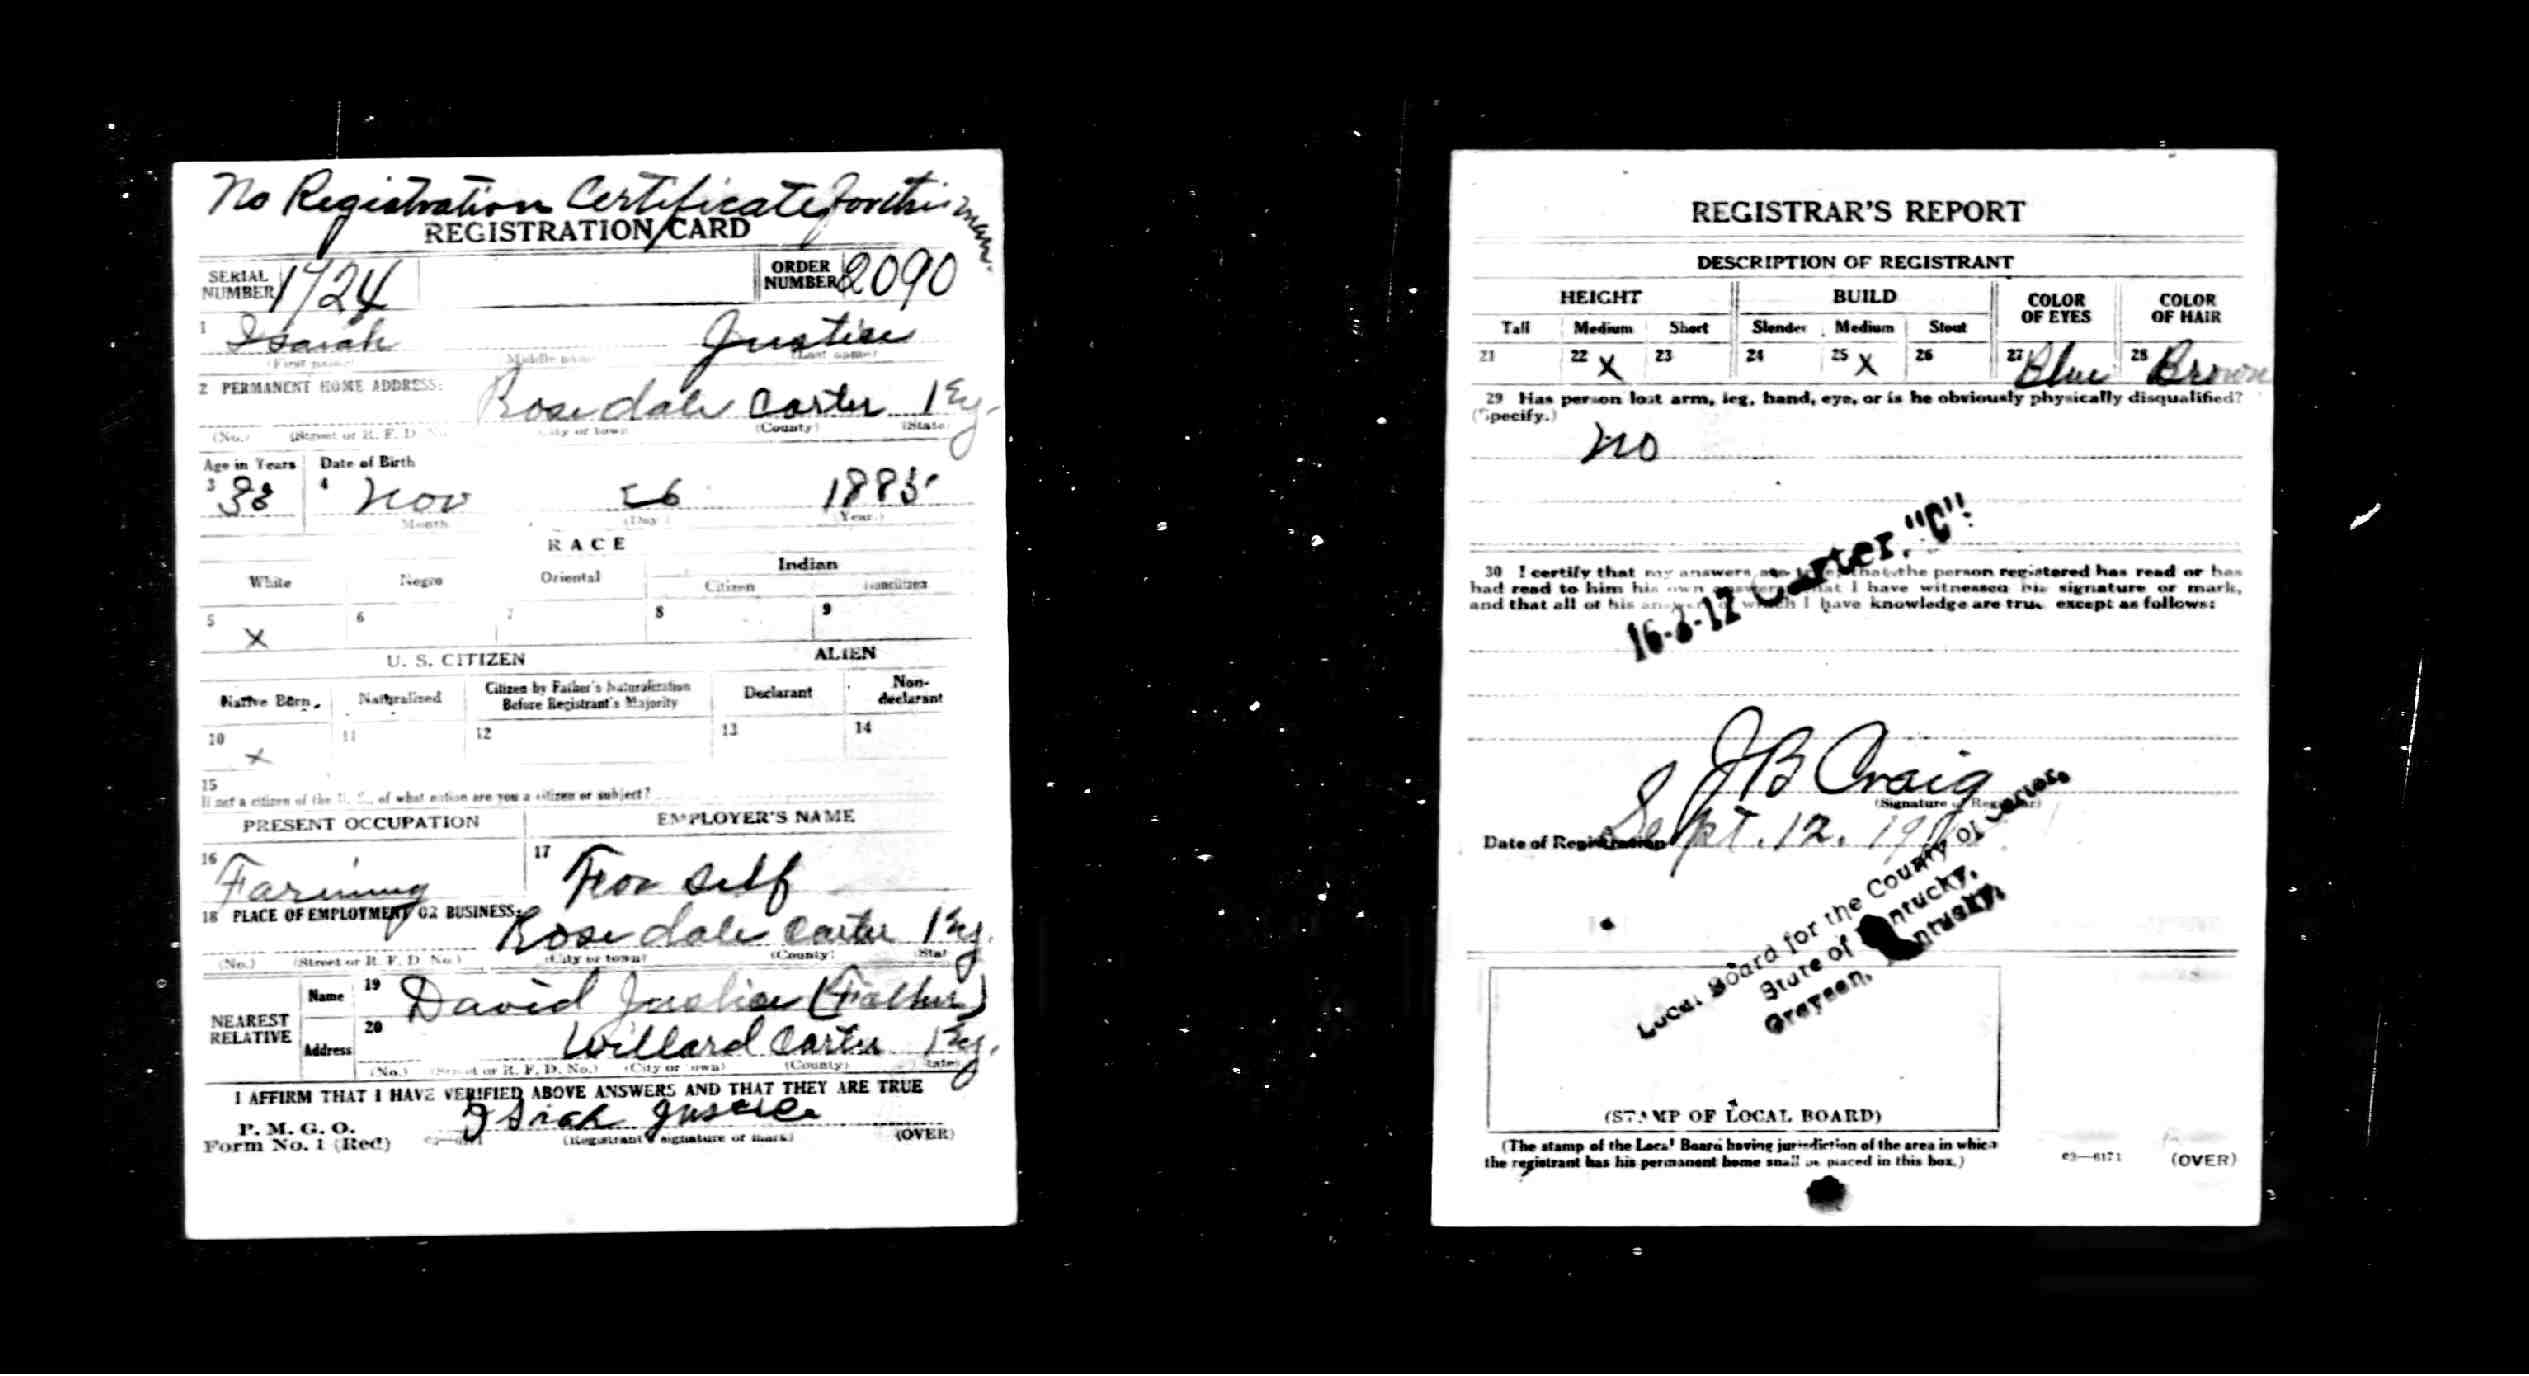 No Registration Certificate for this man.
REGISTRATION CARD
SERIAL NUMBER 1724
ORDER NUMBER 2090
1 Isaiah Justice
(First name) Middle name (Last name)
2 PERMANENT HOME ADDRESS:
Rosedale Carter Ky.
(No.) (Street or R. F. D. No.) (City or town) (County) (State)
Age in Years Date of Birth
3 4 Nov 1885
Month (Day) (Year.)
RACE
White Negro Oriental Indian
Citizen Noncitizen
5 X 6 7 8 9
U. S. CITIZEN ALIEN
Native Born. Naturalized Citizen by Father's Naturalization Before Registrant's Majority Declarant Non-declarant
10 X 11 12 13 14
15
If not a citizen of the U. S., of what nation are you a citizen or subject?
PRESENT OCCUPATION EMPLOYER'S NAME
16 Farming 17 For self
18 PLACE OF EMPLOYMENT OR BUSINESS:
Rosedale Carter Ky.
(No.) (Street or R. F. D. No.) (City or town) (County) (State)
NEAREST RELATIVE
Name 19 David Justice (Father)
Address 20 Willard Carter Ky.
(No.) (Street or R. F. D. No.) (City or town) (County) (State)
I AFFIRM THAT I HAVE VERIFIED ABOVE ANSWERS AND THAT THEY ARE TRUE
P. M. G. O.
Form No. 1 (Red) (Registrant's signature or mark) (OVER)
REGISTRAR'S REPORT
DESCRIPTION OF REGISTRANT
HEIGHT BUILD COLOR OF EYES COLOR OF HAIR
Tall Medium Short Slender Medium Stout
21 22 X 23 24 25 X 26 27 Blue 28 Brown
29 Has person lost arm, leg, hand, eye, or is he obviously physically disqualified?
(Specify.)
No
16-3-12 Carter. "C".
30 I certify that my answers are true; that the person registered has read or has
had read to him his own answers; that I have witnessed his signature or mark,
and that all of his answers of which I have knowledge are true, except as follows:
J B Craig
(Signature of Registrar)
Date of Registration Sept. 12. 19
Local Board for the County of Carter,
State of Kentucky,
Grayson, Kentucky,
(STAMP OF LOCAL BOARD)
(The stamp of the Local Board having jurisdiction of the area in which
the registrant has his permanent home shall be placed in this box.)
03—6171 (OVER)